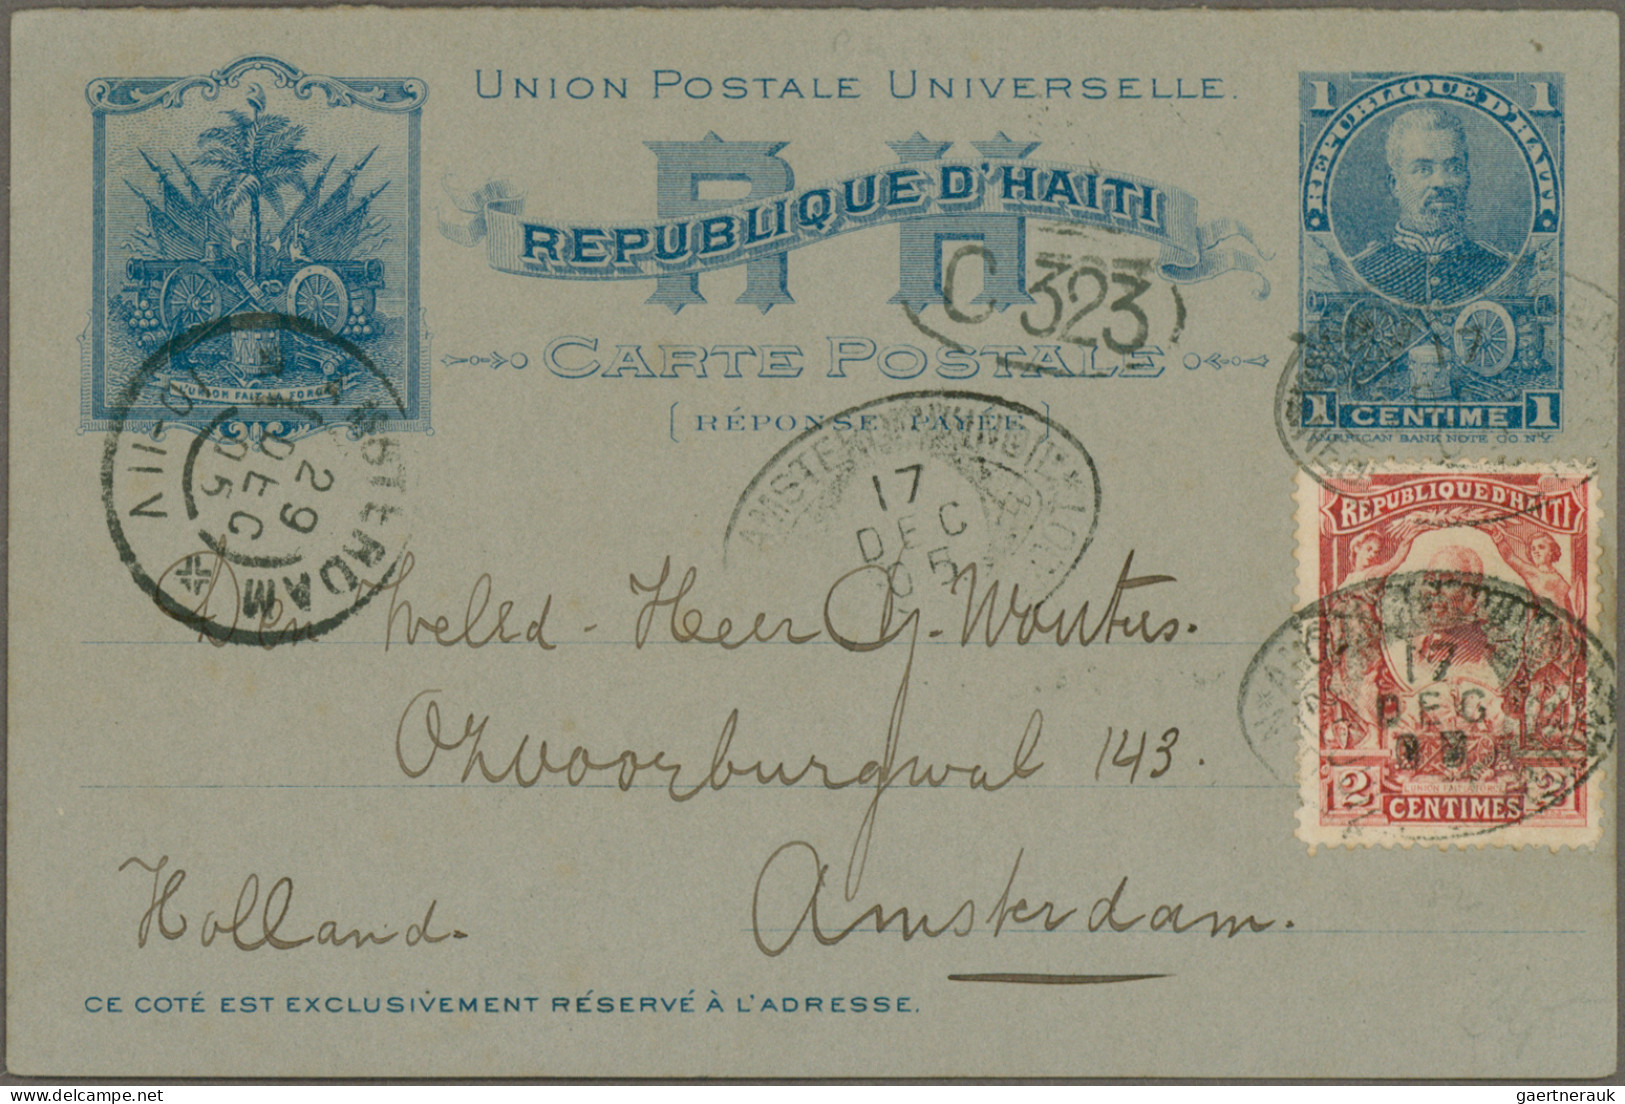 UNION POSTALE UNIVERSELLE.
R H
REPUBLIQUE D'HAITI
CARTE POSTALE
[RÉPONSE PAYÉE]
L'UNION FAIT LA FORCE
1 1
REPUBLIQUE D'HAITI
1 CENTIME 1
AMERICAN BANK NOTE CO. N.Y.
C 323
AMSTERDAM
29 DEC 05
VII-
17
DEC
05
17
REPUBLIQUE D'HAITI
17
DEC
L'UNION FAIT LA FORCE
2 CENTIMES 2
Den Weled. Heer
Holland.
143.
Amsterdam.
CE COTÉ EST EXCLUSIVEMENT RÉSERVÉ À L'ADRESSE.
gaertnerauk